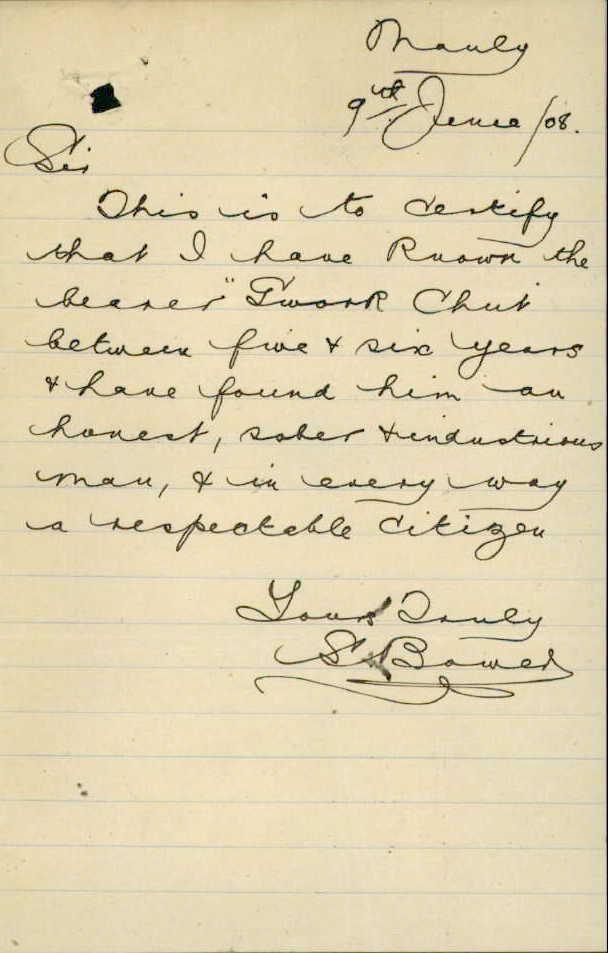 Manly
9th June /08.
Sir
This is to certify
that I have Known the
bearer "Gwork Chut
between five & six years
& have found him an
honest, sober & industrious
man, & in every way
a respectable citizen
Yours Truly
S. Bower